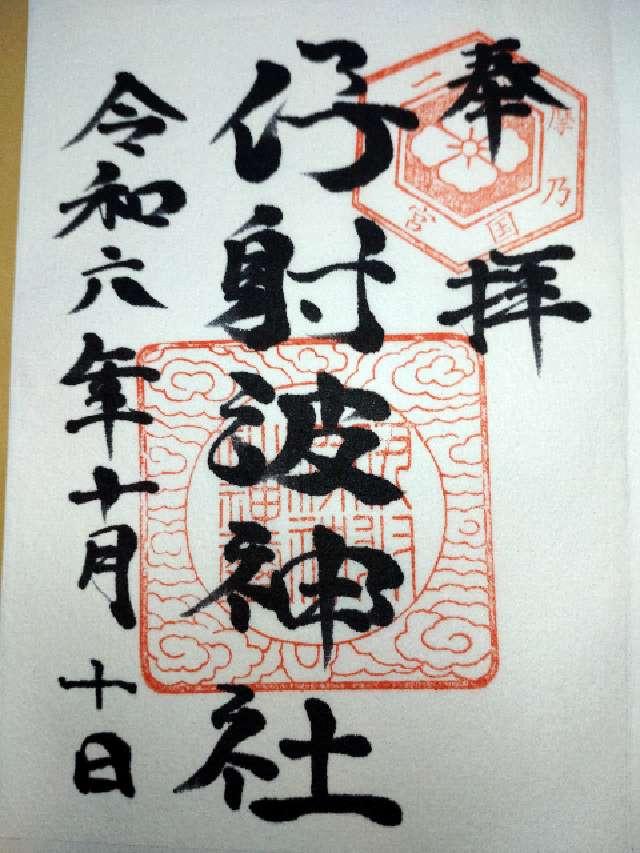 奉拝
摩乃国二宮
伊射波神社
令和六年十月十日